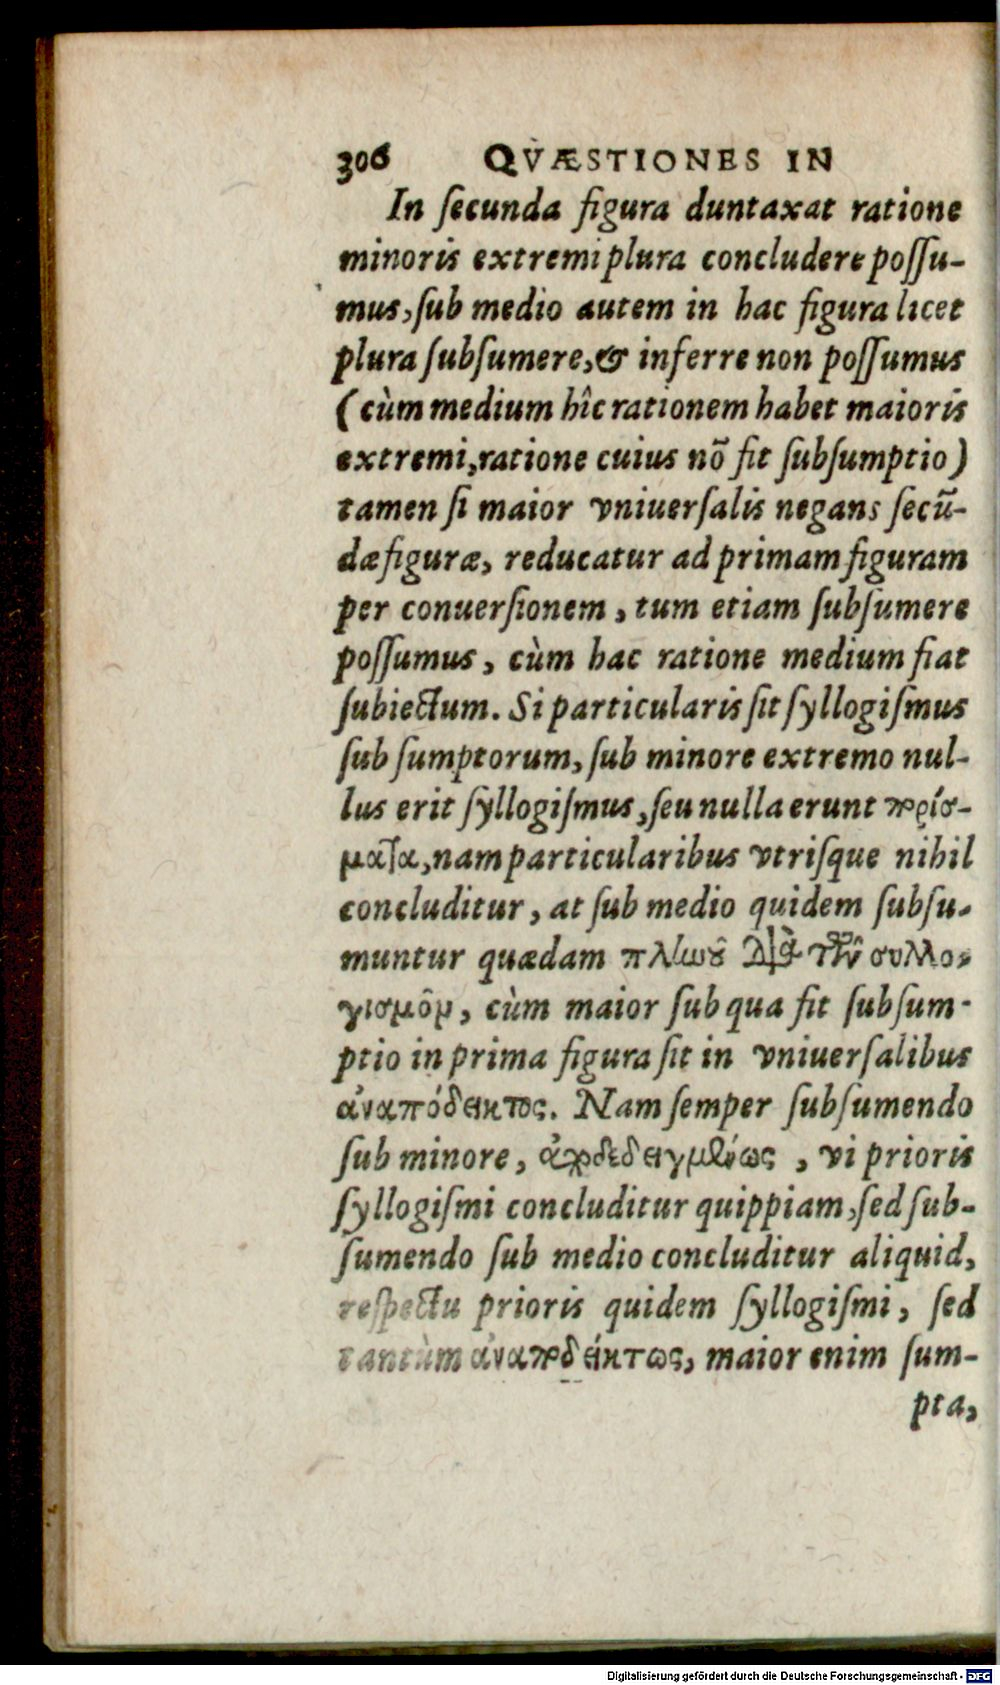 306 QVÆSTIONES IN
In ſecunda figura duntaxat ratione
minoris extremi plura concludere poſſu-
mus, ſub medio autem in hac figura licet
plura ſubſumere, & inferre non poſſumus
(cùm medium hîc rationem habet maioris
extremi, ratione cuius nõ fit ſubſumptio)
tamen ſi maior vniuerſalis negans ſecũ-
dæ figuræ, reducatur ad primam figuram
per conuerſionem, tum etiam ſubſumere
poſſumus, cùm hac ratione medium fiat
ſubiectum. Si particularis ſit ſyllogiſmus
ſub ſumptorum, ſub minore extremo nul-
lus erit ſyllogiſmus, ſeu nulla erunt πορίσ-
ματα, nam particularibus vtriſque nihil
concluditur, at ſub medio quidem ſubſu-
muntur quædam διὰ τῶν συλλο-
γισμῶν, cùm maior ſub qua fit ſubſum-
ptio in prima figura ſit in vniuerſalibus
ἀναπόδεικτος. Nam ſemper ſubſumendo
ſub minore, ἀποδεδειγμένως, vi prioris
ſyllogiſmi concluditur quippiam, ſed ſub-
ſumendo ſub medio concluditur aliquid,
reſpectu prioris quidem ſyllogiſmi, ſed
tantùm ἀναποδείκτως, maior enim ſum-
pta,
Digitalisierung gefördert durch die Deutsche Forschungsgemeinschaft - DFG